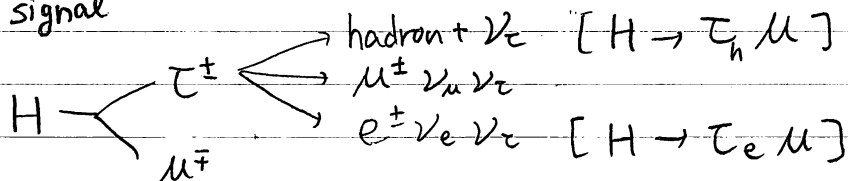 signal
hadron + ν_τ [H → τ_h μ]
τ^±
μ^± ν_μ ν_τ
H
e^± ν_e ν_τ [H → τ_e μ]
μ^∓